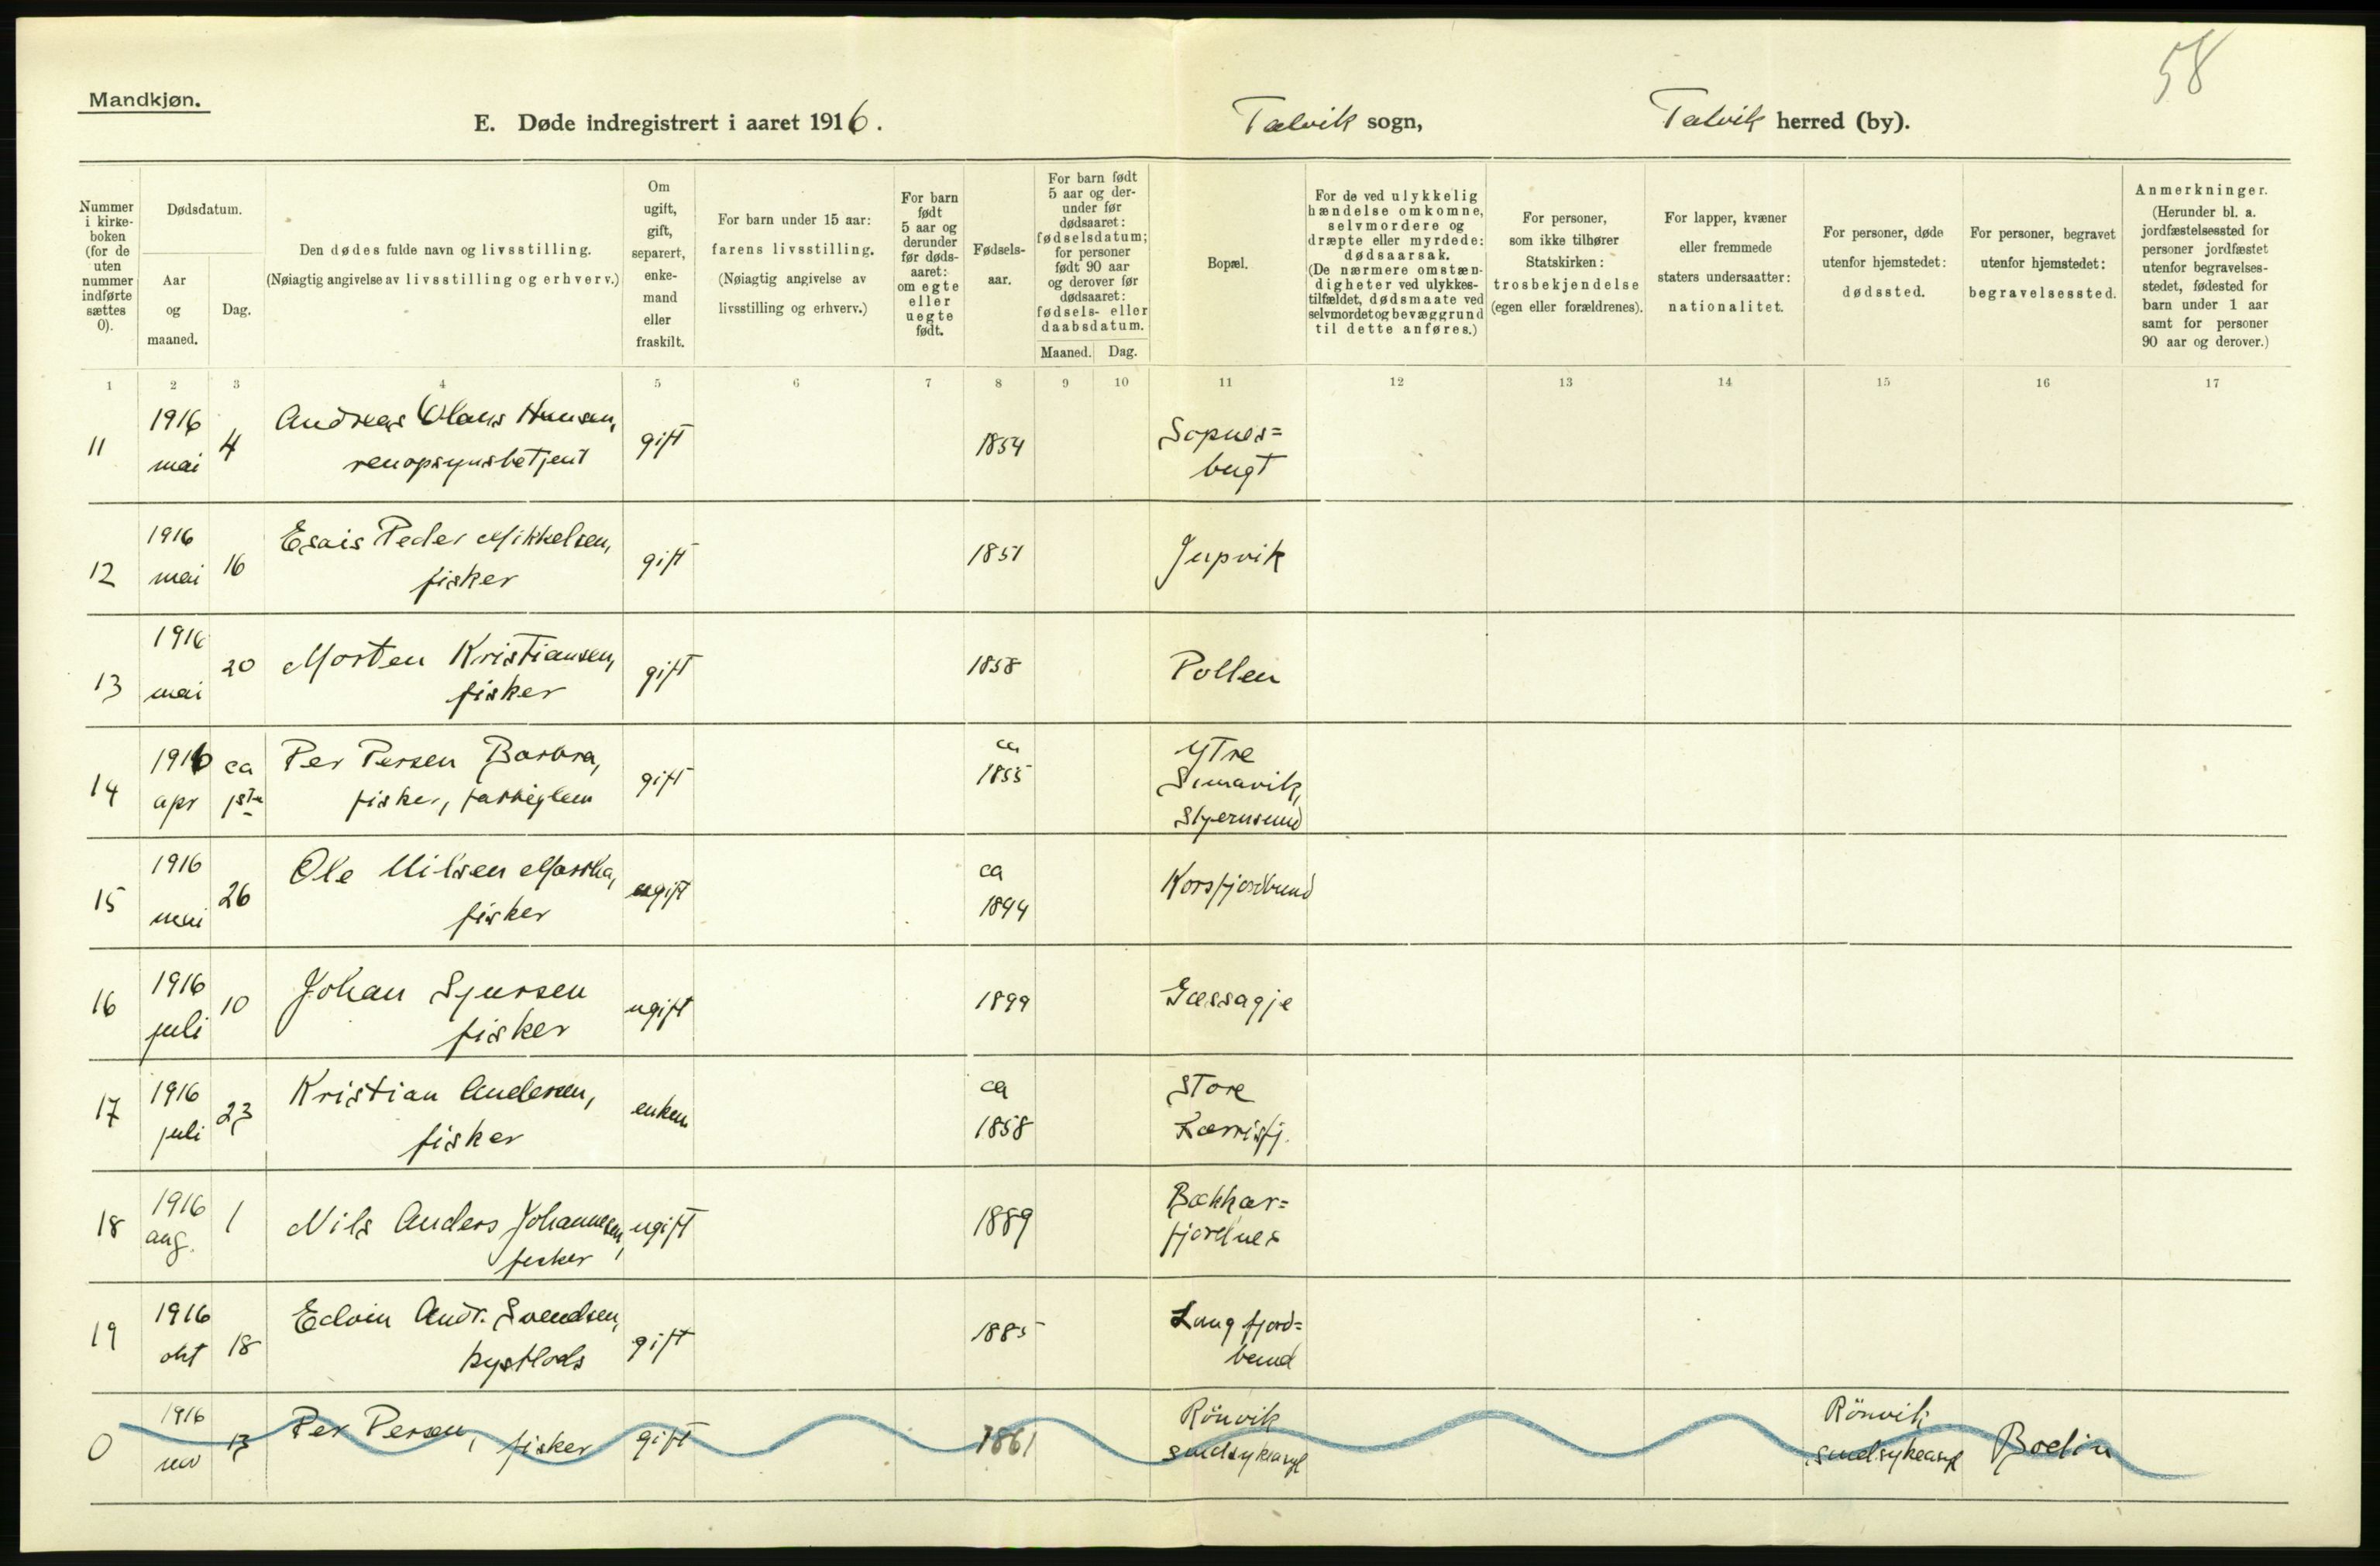 58
Mandkjøn.
E. Døde indregistrert i aaret 1916.
Talvik sogn,
Talvik herred (by).
Nummer i kirke-boken (for de uten nummer indførte sættes 0).
Dødsdatum.
Aar og maaned.
Dag.
Den dødes fulde navn og livsstilling.
(Nøiagtig angivelse av livsstilling og erhverv.)
Om ugift, gift, separert, enke-mand eller fraskilt.
For barn under 15 aar:
farens livsstilling.
(Nøiagtig angivelse av livsstilling og erhverv.)
For barn født 5 aar og derunder før døds-aaret: om egte eller uegte født.
Fødsels-aar.
For barn født 5 aar og der-under før dødsaaret: fødselsdatum; for personer født 90 aar og derover før dødsaaret: fødsels- eller daabsdatum.
Maaned. Dag.
Bopæl.
For de ved ulykkelig hændelse omkomne, selvmordere og dræpte eller myrdede: dødsaarsak.
(De nærmere omstæn-digheter ved ulykkes-tilfældet, dødsmaate ved selvmordet og bevæggrund til dette anføres.)
For personer, som ikke tilhører Statskirken: trosbekjendelse (egen eller forældrenes).
For lapper, kvæner eller fremmede staters undersaatter: nationalitet.
For personer, døde utenfor hjemstedet: dødssted.
For personer, begravet utenfor hjemstedet: begravelsessted.
Anmerkninger.
(Herunder bl. a. jordfæstelsessted for personer jordfæstet utenfor begravelses-stedet, fødested for barn under 1 aar samt for personer 90 aar og derover.)
1 2 3 4 5 6 7 8 9 10 11 12 13 14 15 16 17
11 1916 mai 4 Andreas Olaus Hansen, renopsynsbetjent gift 1854 Sopnes=bugt
12 1916 mai 16 Esais Peder Mikkelsen, fisker gift 1851 Jupvik
13 1916 mai 20 Morten Kristiansen, fisker gift 1858 Pollen
14 1916 apr ca 1ste Per Persen Barbra, fisker, gift ca 1855 Ytre Simavik, Stjernsund
15 1916 mai 26 Ole Nilsen fisker ugift ca 1894 Korsfjordbund
16 1916 juli 10 Johan Sjursen fisker ugift 1899
17 1916 juli 23 Kristian Andersen, fisker enkem ca 1858 Store
18 1916 aug. 1 Nils Anders Johannesen, fisker ugift 1889 Bækkar=fjordnes
19 1916 okt 18 Edvin Andr. Svendsen, kystlods gift 1885 Langfjord=bund
0 1916 nov 13 Per Persen, fisker gift 1861 Rönvik sindsykeasyl Rönvik sindsykeasyl Bodin